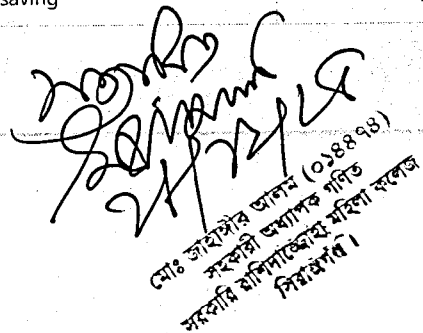 saving
সত্যায়িত
মোঃ জাহাঙ্গীর আলম (০১৪৪৭৪)
সহকারী অধ্যাপক গণিত
সরকারি রাশিদাজ্জোহা মহিলা কলেজ
সিরাজগঞ্জ।